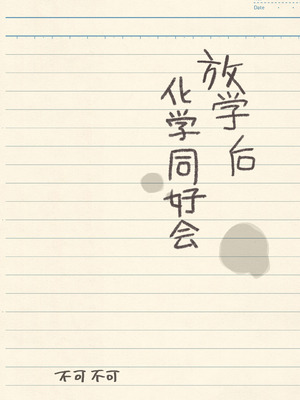 Date
放学后
化学同好会
不可不可